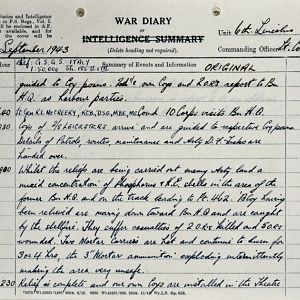 Diaries and Intelligence
in F.S. Regs., Vol. I.
should be enclosed in A.F.
if not available, and for
ill be enclosed in
required.
WAR DIARY
OR
INTELLIGENCE SUMMARY
(Delete heading not required).
Unit 6th Lincolns
Commanding Officer Lt. Co
September 1943
Ref. G.S.G.S. ITALY
1:50,000 Sh.
Summary of Events and Information
ORIGINAL
guided to Coy posns. own Coy and 2 ORs report to Bn
H.Q. as harbour parties.
Lt. Gen R.L. McCREERY, KCB, DSO, MBE, MC Comd 10 Corps visits Bn H.Q.
Coys of 2/5 LEICESTERS arrive and are guided to respective Coy posns
Details of Patrols, routes, maintenance and Arty D.F. tasks are
handed over.
Whilst the reliefs are being carried out many Arty land a
mixed concentration of Phosphorus & H.E. shells in the area of the
former Bn H.Q. and on the track leading to Pt. 462. B Coy having
been relieved are moving down toward Bn H.Q and are caught
by the shellfire. They suffer casualties of 2 ORs killed and 5 ORs
wounded. Two Mortar Carriers are hit and continue to burn for
3 or 4 hrs, the 3" Mortar ammunition exploding intermittently
making the area very unsafe.
Relief is complete and our own Coys are installed in the Theatre